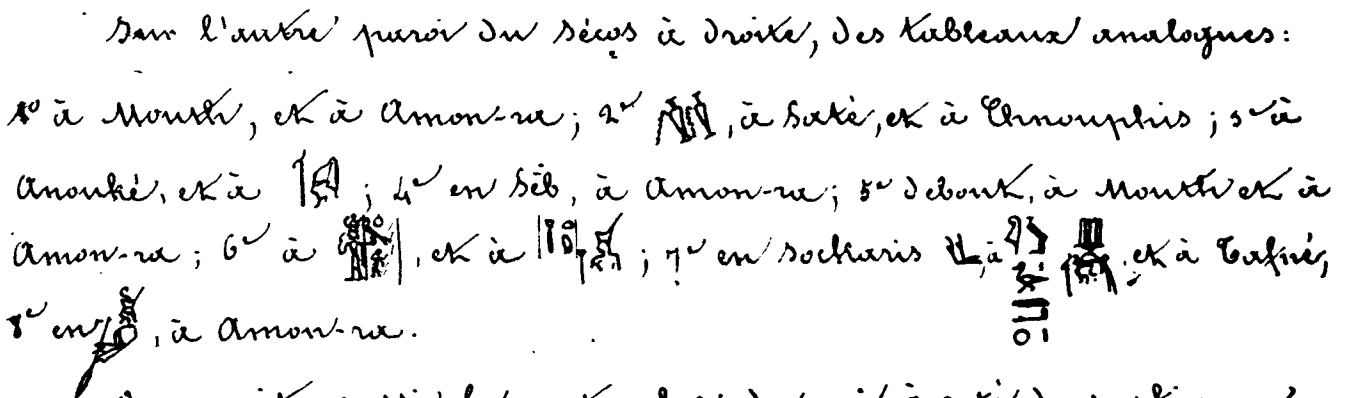 Sur l'autre paroi du sécos à droite, des tableaux analogues:
1º à Mouth, et à Amon-ra; 2º , à Saté, et à Chnouphis; 3º à
Anouké, et à ; 4º en Sèb, à Amon-ra; 5º debout, à Mouth et à
Amon-ra; 6º à , et à ; 7º en sockaris , à et à Tafné;
8º en , à Amon-ra.